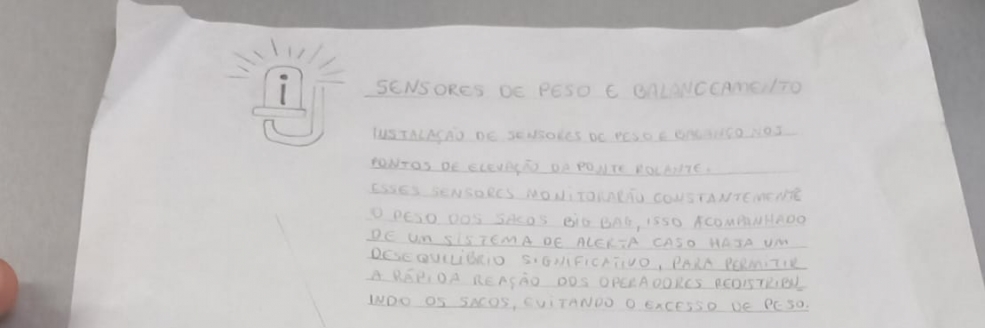 i
SENSORES DE PESO E BALANCEAMENTO
INSTALAÇÃO DE SENSORES DE PESO E BALANÇO NOS
PONTOS DE ELEVAÇÃO DA PONTE ROLANTE.
ESSES SENSORES MONITORARÃO CONSTANTEMENTE
O PESO DOS SACOS BIG BAG, ISSO ACOMPANHADO
DE UM SISTEMA DE ALERTA CASO HAJA UM
DESEQUILÍBRIO SIGNIFICATIVO, PARA PERMITIR
A RÁPIDA REAÇÃO DOS OPERADORES REDISTRIBU
INDO OS SACOS, EVITANDO O EXCESSO DE PESO.